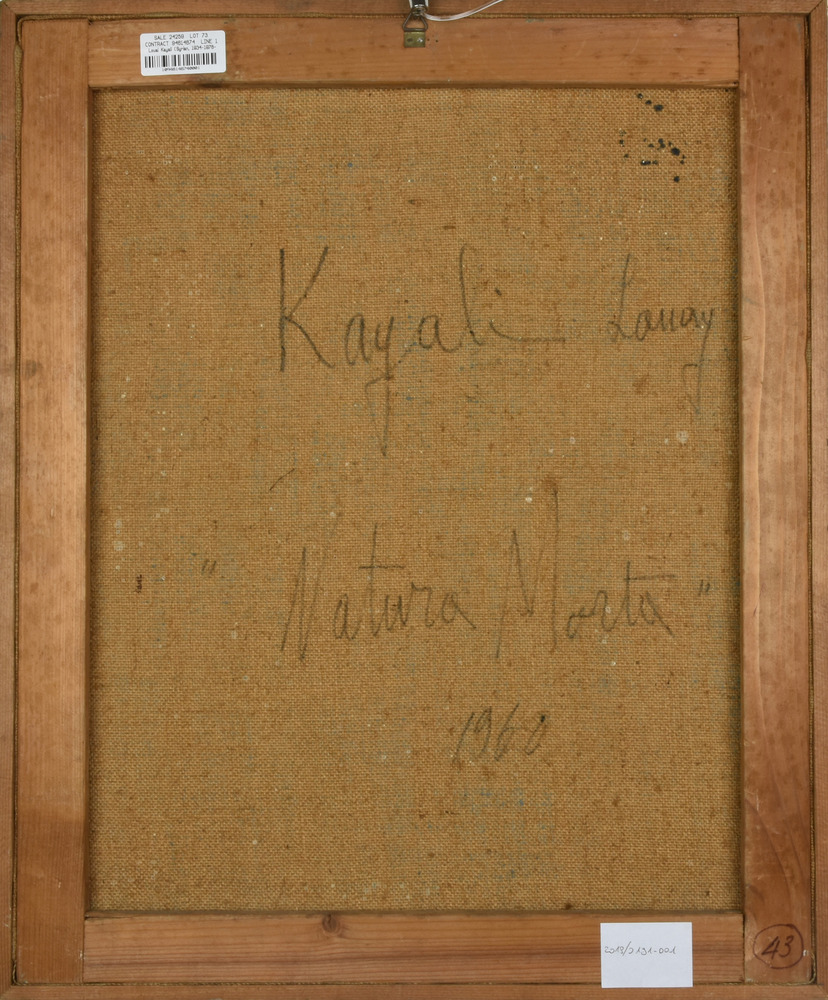 SALE 24259 LOT 73
CONTRACT 84814674 LINE 1
Louai Kayali (Syrian, 1934-1978)
Kayali Louay
"Natura Morta"
1960
2019/2191-001
43